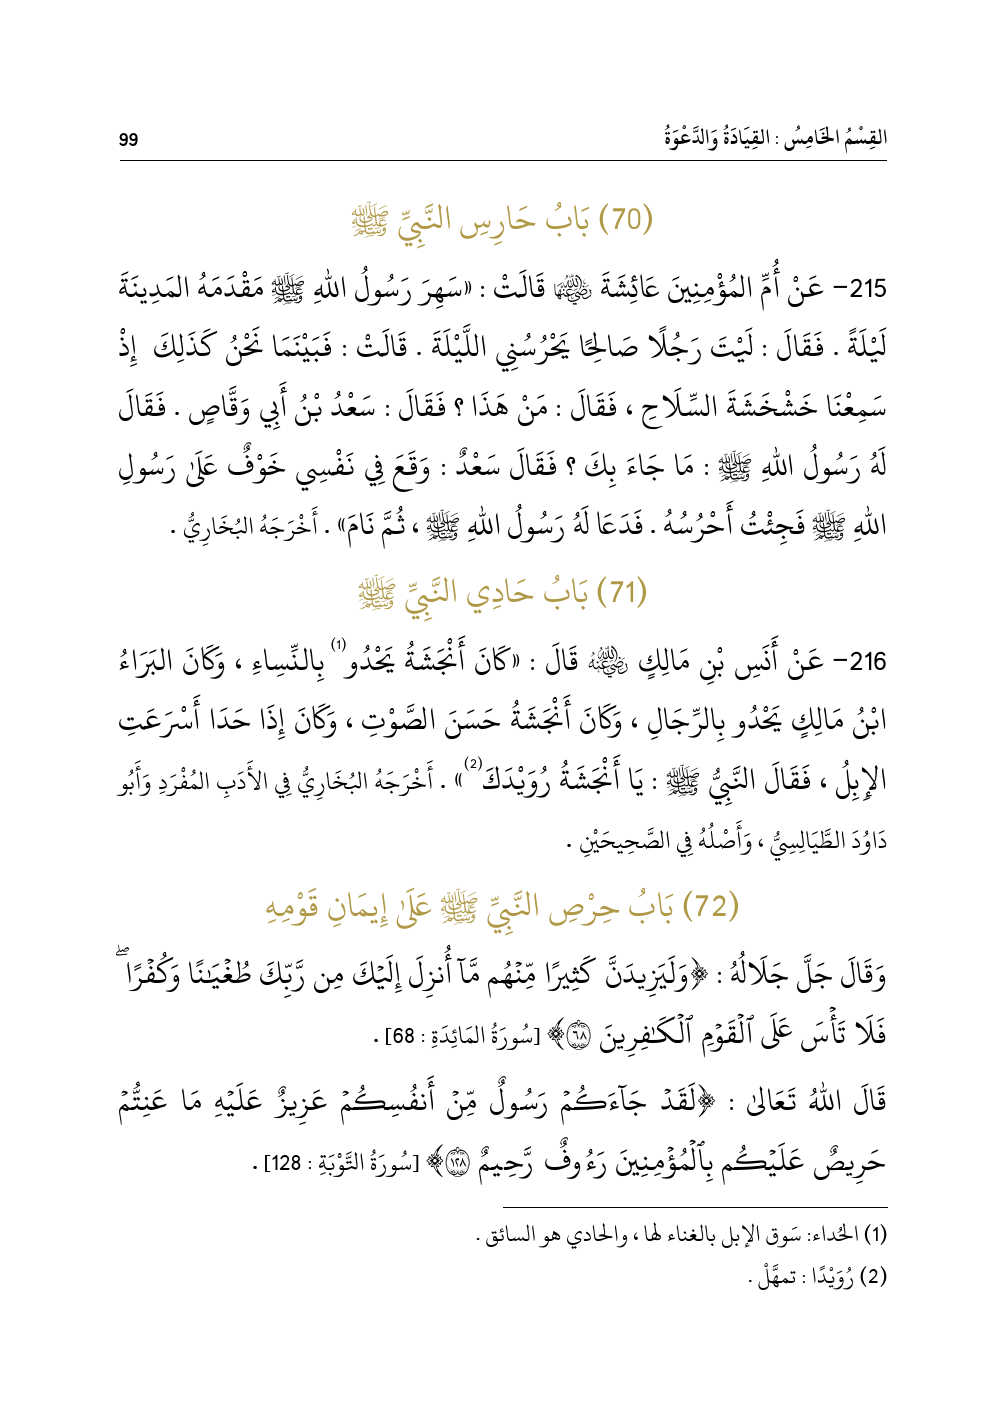 القِسْمُ الخَامِسُ : القِيَادَةُ وَالدَّعْوَةُ 99
(70) بَابُ حَارِسِ النَّبِيِّ ﷺ
215- عَنْ أُمِّ المُؤْمِنِينَ عَائِشَةَ رَضِيَ اللهُ عَنْهَا قَالَتْ : «سَهِرَ رَسُولُ اللهِ ﷺ مَقْدَمَهُ المَدِينَةَ
لَيْلَةً . فَقَالَ : لَيْتَ رَجُلًا صَالِحًا يَحْرُسُنِي اللَّيْلَةَ . قَالَتْ : فَبَيْنَمَا نَحْنُ كَذَلِكَ إِذْ
سَمِعْنَا خَشْخَشَةَ السِّلَاحِ ، فَقَالَ : مَنْ هَذَا ؟ فَقَالَ : سَعْدُ بْنُ أَبِي وَقَّاصٍ . فَقَالَ
لَهُ رَسُولُ اللهِ ﷺ : مَا جَاءَ بِكَ ؟ فَقَالَ سَعْدٌ : وَقَعَ فِي نَفْسِي خَوْفٌ عَلَىٰ رَسُولِ
اللهِ ﷺ فَجِئْتُ أَحْرُسُهُ . فَدَعَا لَهُ رَسُولُ اللهِ ﷺ ، ثُمَّ نَامَ» . أَخْرَجَهُ البُخَارِيُّ .
(71) بَابُ حَادِي النَّبِيِّ ﷺ
216- عَنْ أَنَسِ بْنِ مَالِكٍ رَضِيَ اللهُ عَنْهُ قَالَ : «كَانَ أَنْجَشَةُ يَحْدُو(1) بِالنِّسِاءِ ، وَكَانَ البَرَاءُ
ابْنُ مَالِكٍ يَحْدُو بِالرِّجَالِ ، وَكَانَ أَنْجَشَةُ حَسَنَ الصَّوْتِ ، وَكَانَ إِذَا حَدَا أَسْرَعَتِ
الإِبِلُ ، فَقَالَ النَّبِيُّ ﷺ : يَا أَنْجَشَةُ رُوَيْدَكَ(2)» . أَخْرَجَهُ البُخَارِيُّ فِي الأَدَبِ المُفْرَدِ وَأَبُو
دَاوُدَ الطَّيَالِسِيُّ ، وَأَصْلُهُ فِي الصَّحِيحَيْنِ .
(72) بَابُ حِرْصِ النَّبِيِّ ﷺ عَلَىٰ إِيمَانِ قَوْمِهِ
وَقَالَ جَلَّ جَلَالُهُ : ﴿وَلَيَزِيدَنَّ كَثِيرًا مِّنْهُم مَّآ أُنزِلَ إِلَيْكَ مِن رَّبِّكَ طُغْيَـٰنًا وَكُفْرًا ۖ
فَلَا تَأْسَ عَلَى ٱلْقَوْمِ ٱلْكَـٰفِرِينَ ٦٨﴾ [سُورَةُ المَائِدَةِ : 68] .
قَالَ اللهُ تَعَالَىٰ : ﴿لَقَدْ جَآءَكُمْ رَسُولٌ مِّنْ أَنفُسِكُمْ عَزِيزٌ عَلَيْهِ مَا عَنِتُّمْ
حَرِيصٌ عَلَيْكُم بِٱلْمُؤْمِنِينَ رَءُوفٌ رَّحِيمٌ ١٢٨﴾ [سُورَةُ التَّوْبَةِ : 128] .
(1) الحُداء: سَوق الإبل بالغناء لها ، والحادي هو السائق .
(2) رُوَيْدًا : تمهَّلْ .